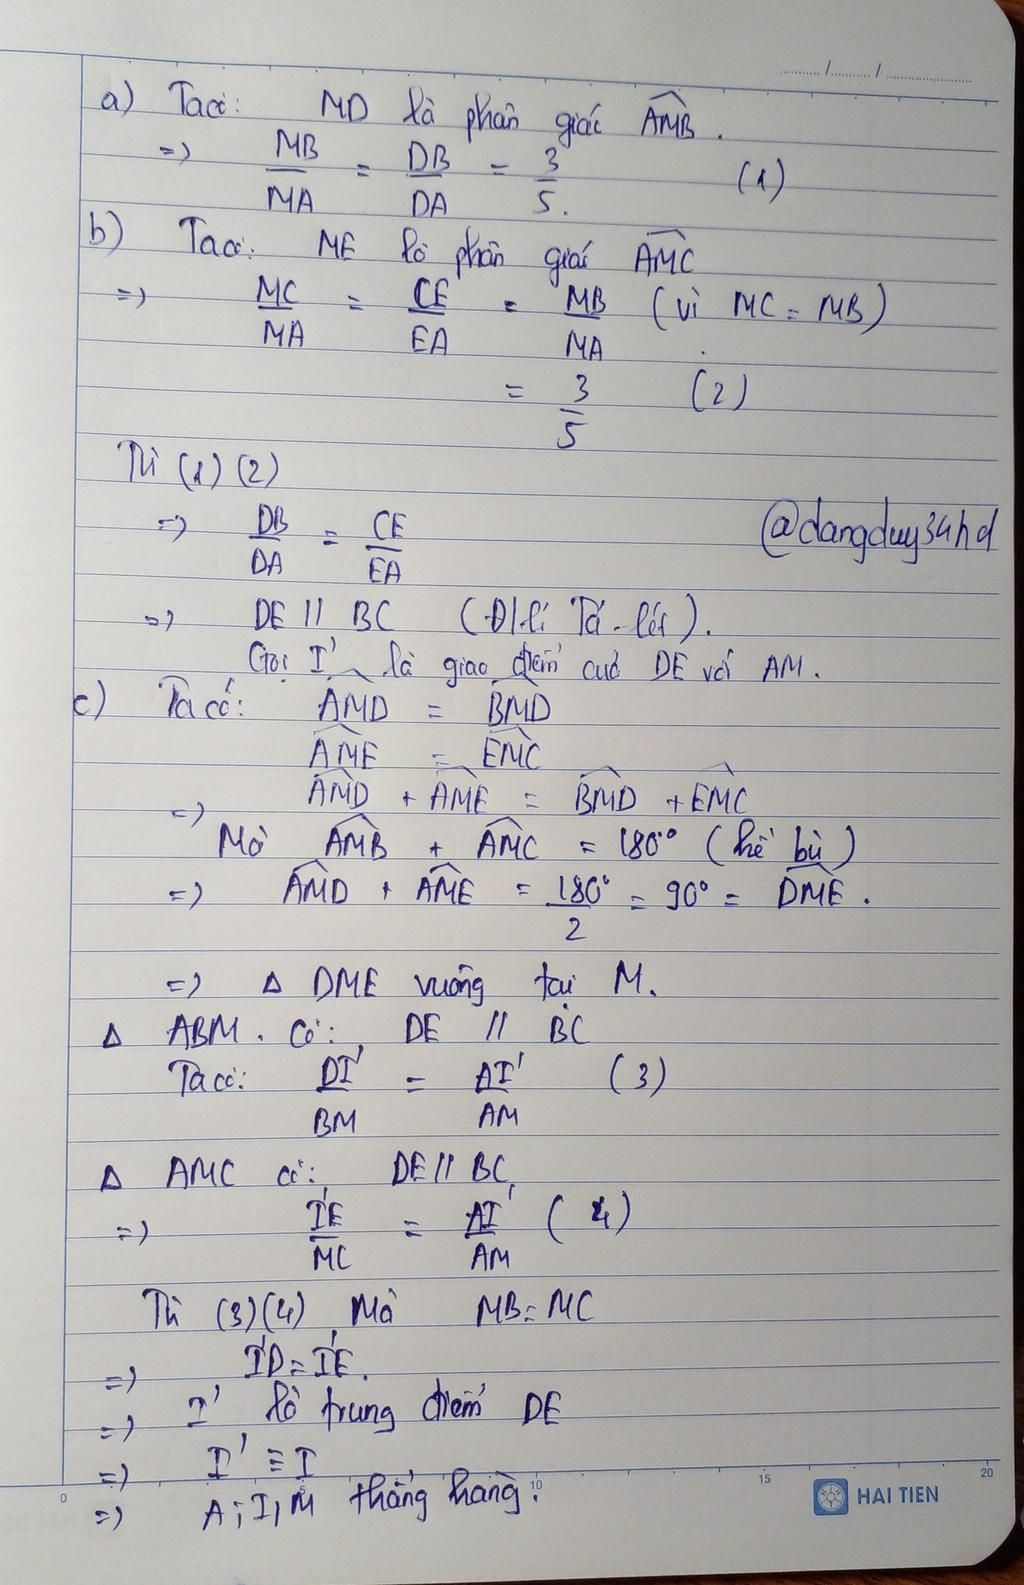 a) Ta có: MD là phân giác AMB.
=> MB/MA = DB/DA = 3/5. (1)
b) Ta có: ME là phân giác AMC
=> MC/MA = CE/EA = MB/MA (vì MC = MB)
= 3/5 (2)
Từ (1) (2)
=> DB/DA = CE/EA
@dangduy34hd
=> DE // BC (Đ/lí Ta-lét).
Gọi I' là giao điểm của DE với AM.
c) Ta có: AMD = BMD
AME = EMC
=> AMD + AME = BMD + EMC
Mà AMB + AMC = 180° (kề bù)
=> AMD + AME = 180°/2 = 90° = DME.
=> Δ DME vuông tại M.
Δ ABM. Có: DE // BC
Ta có: DI'/BM = AI'/AM (3)
Δ AMC có: DE // BC
=> I'E/MC = AI'/AM (4)
Từ (3)(4) Mà MB = MC
=> I'D = I'E.
=> I' là trung điểm DE
=> I' ≡ I
=> A; I, M thẳng hàng.
0 5 10 15 20
HAI TIEN